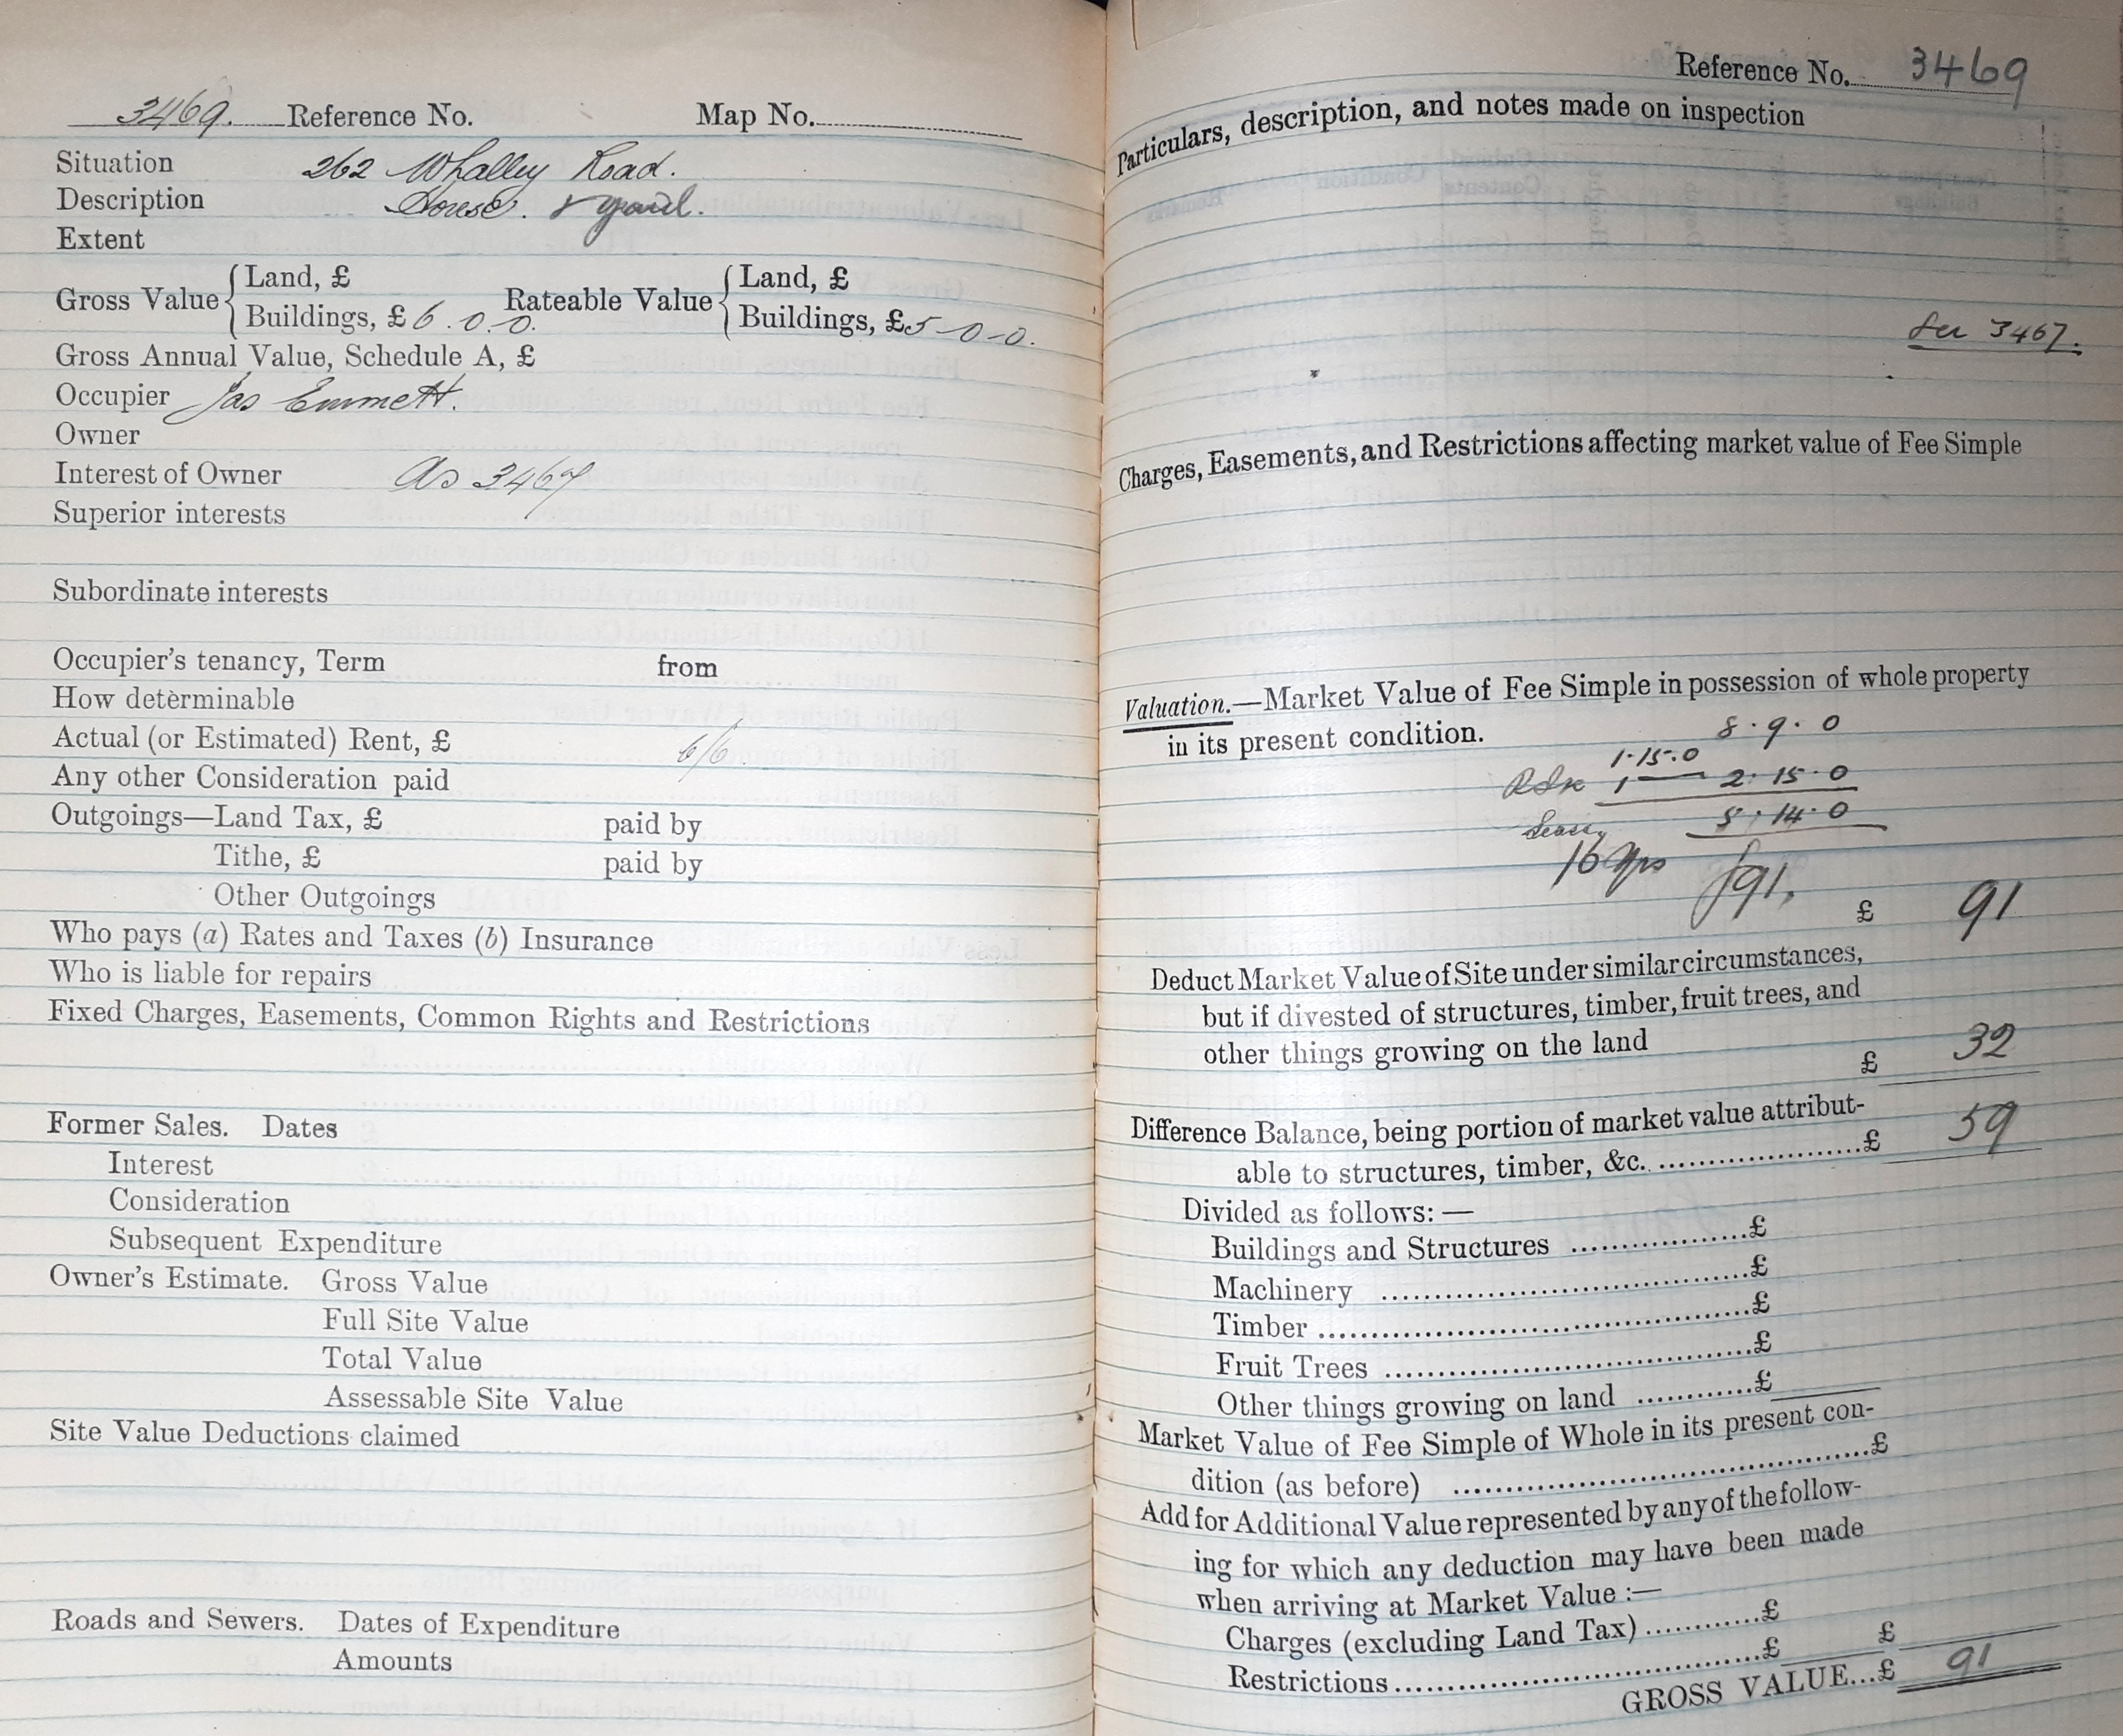 3469. Reference No. Map No.
Situation 262 Whalley Road.
Description House. & yard.
Extent
Gross Value { Land, £ Rateable Value { Land, £
Buildings, £ 6.0.0. Buildings, £ 5-0-0.
Gross Annual Value, Schedule A, £
Occupier Jas Emmett.
Owner
Interest of Owner As 3467
Superior interests
Subordinate interests
Occupier's tenancy, Term from
How determinable
Actual (or Estimated) Rent, £ 6/6
Any other Consideration paid
Outgoings—Land Tax, £ paid by
Tithe, £ paid by
Other Outgoings
Who pays (a) Rates and Taxes (b) Insurance
Who is liable for repairs
Fixed Charges, Easements, Common Rights and Restrictions
Former Sales. Dates
Interest
Consideration
Subsequent Expenditure
Owner's Estimate. Gross Value
Full Site Value
Total Value
Assessable Site Value
Site Value Deductions claimed
Roads and Sewers. Dates of Expenditure
Amounts
Reference No. 3469
Particulars, description, and notes made on inspection
See 3467.
Charges, Easements, and Restrictions affecting market value of Fee Simple
Valuation.—Market Value of Fee Simple in possession of whole property
in its present condition. 8.9.0
1.15.0
1 — 2.15.0
5.14.0
16 Yrs £91.
£ 91
Deduct Market Value of Site under similar circumstances,
but if divested of structures, timber, fruit trees, and
other things growing on the land
£ 32
Difference Balance, being portion of market value attribut-
able to structures, timber, &c. ....................£ 59
Divided as follows:—
Buildings and Structures .................£
Machinery ....................................£
Timber ..........................................£
Fruit Trees ....................................£
Other things growing on land ...........£
Market Value of Fee Simple of Whole in its present con-
dition (as before) ..........................................£
Add for Additional Value represented by any of the follow-
ing for which any deduction may have been made
when arriving at Market Value :—
Charges (excluding Land Tax) ...........£
Restrictions ....................................£ £
GROSS VALUE...£ 91